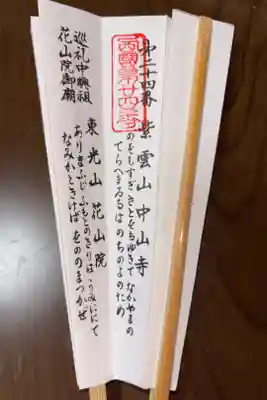 第二十四番 紫雲山中山寺
西國第廿四番
のをもすぎさとをもゆきて なかやまの
てらへまゐるは のちのよのため
巡礼中興祖
花山院御廟
東光山 花山院
ありまふじ ふもとのきりは うみににて
なみかときけば をののまつかぜ